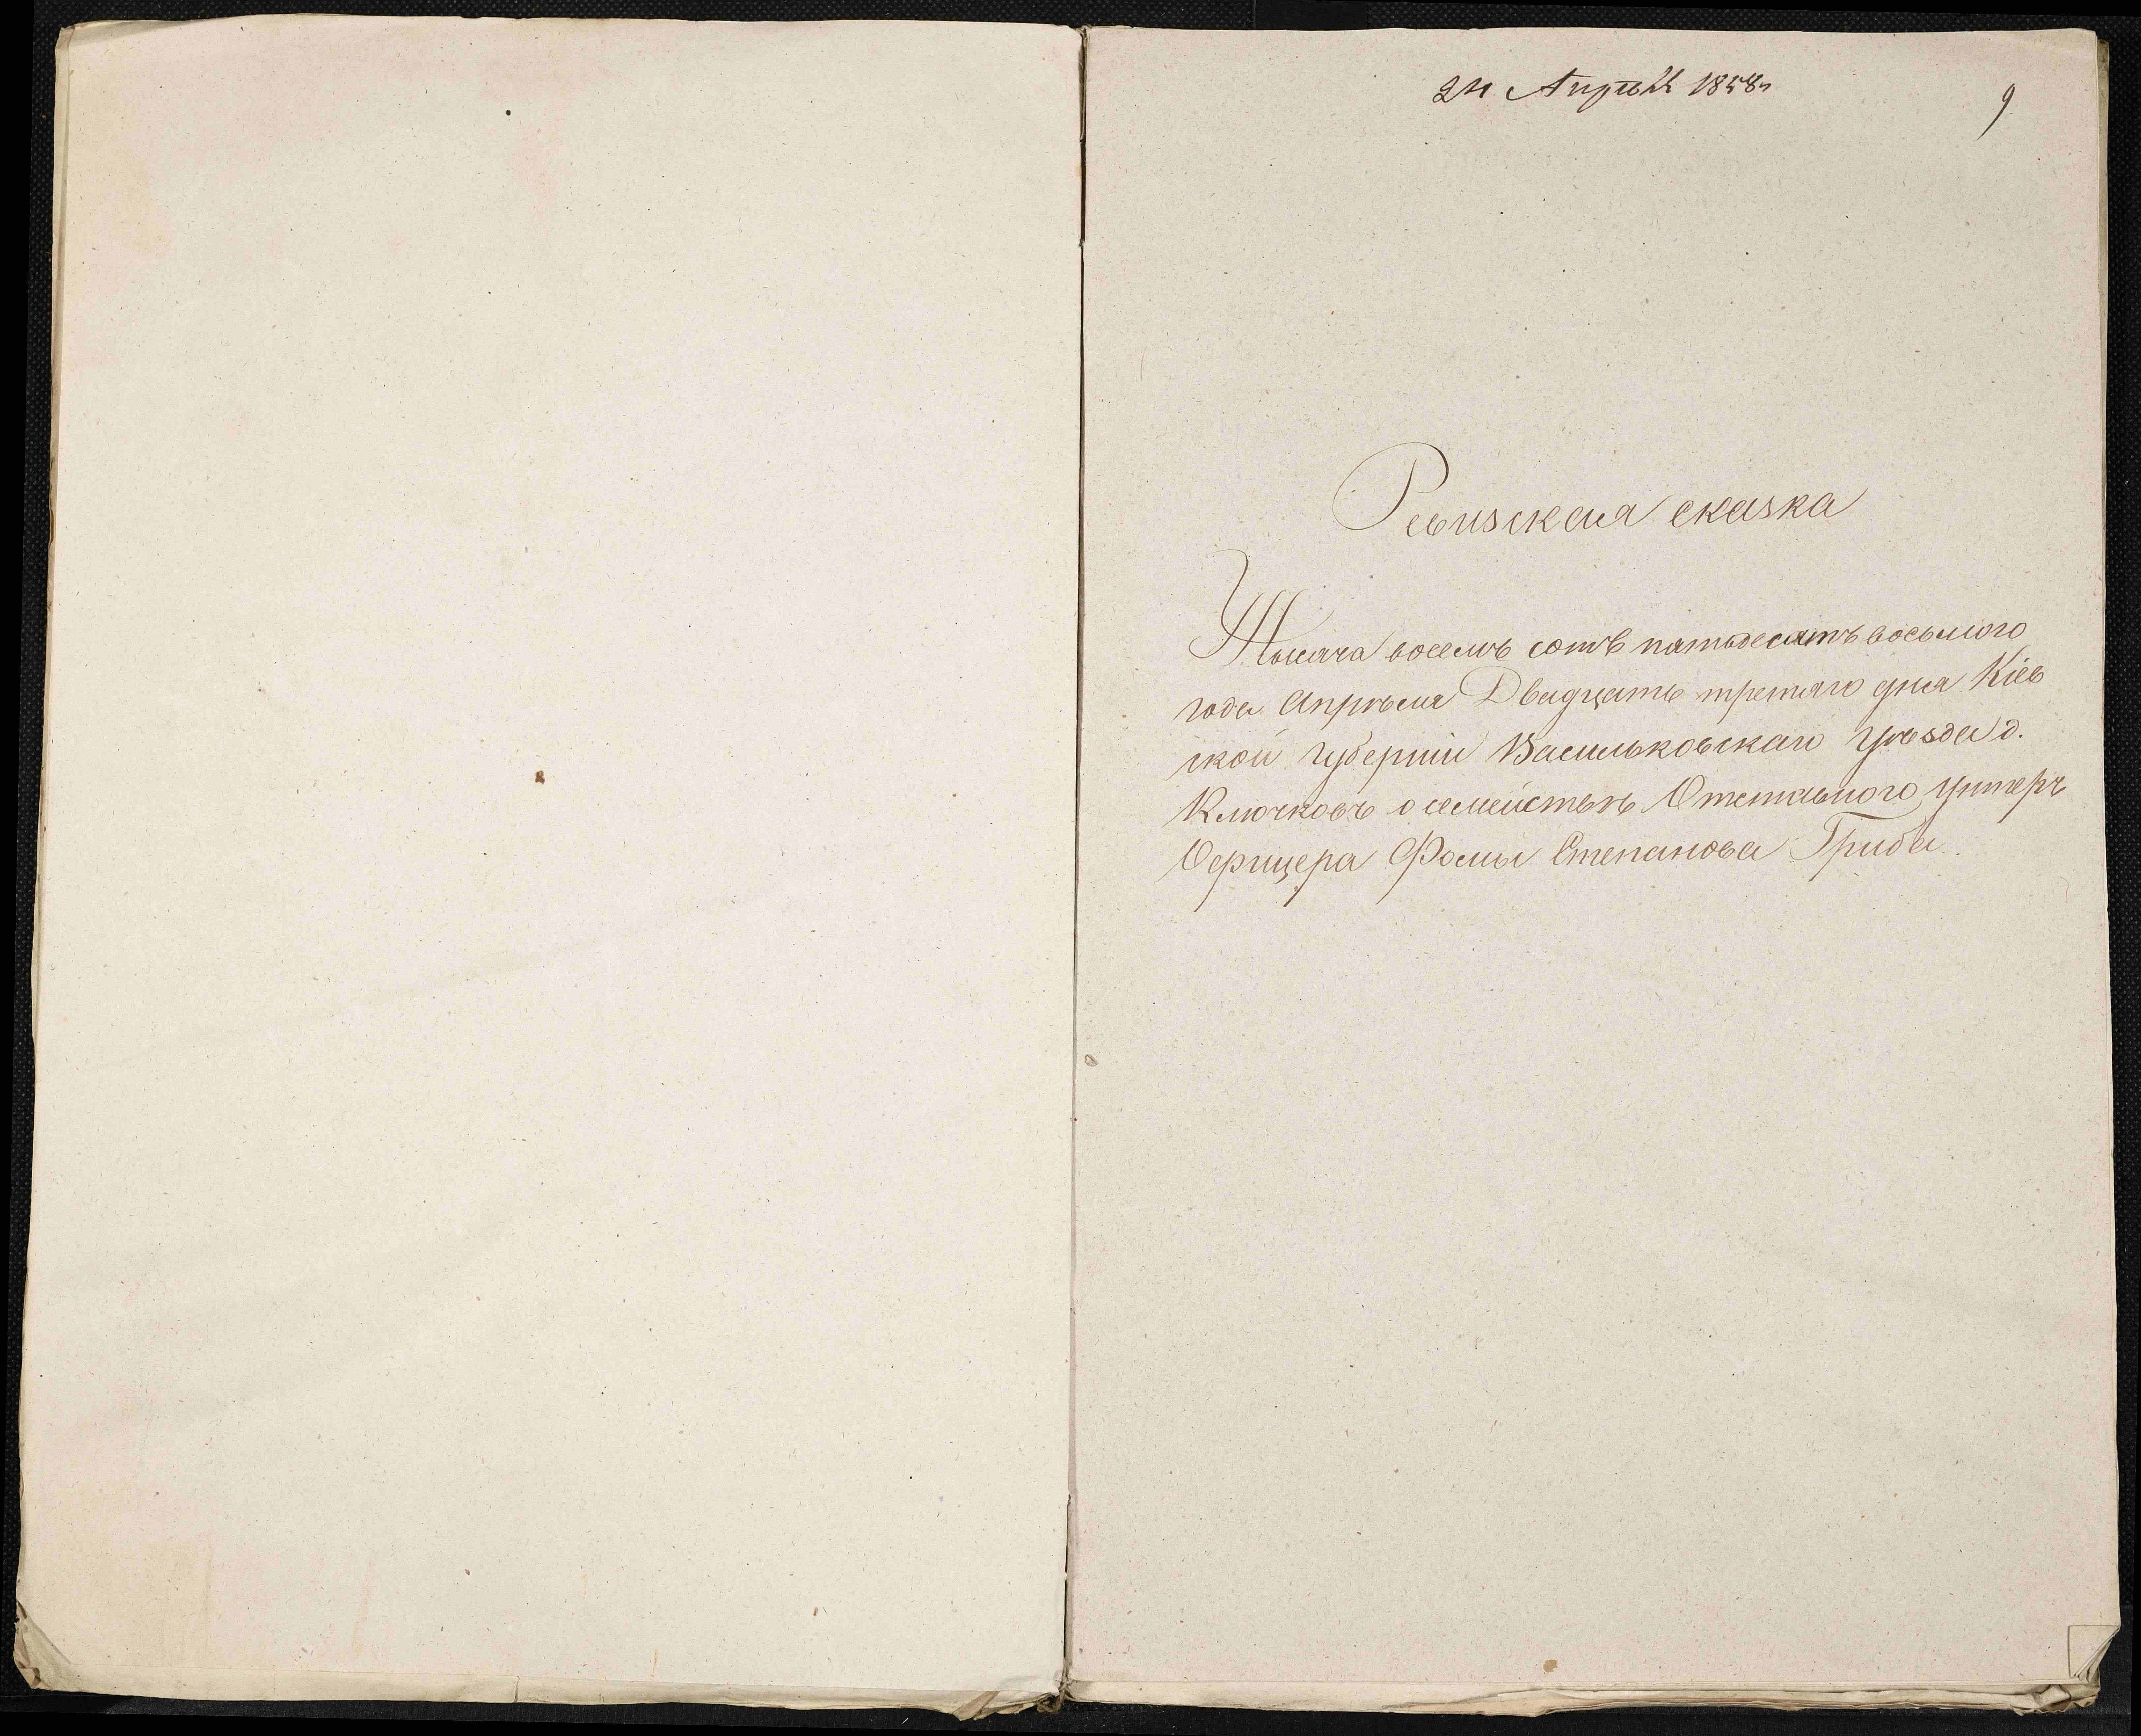 24 Апрѣля 1858 г.
9
Ревизская сказка
Тысяча восемь сотъ пятьдесятъ восьмого
года Апрѣля Двадцать третяго дня Кіев
ской губерніи Васильковскаго уѣзда д.
Ключковъ о семействѣ Отставного унтеръ
Офицера Фомы Степанова Гриба.